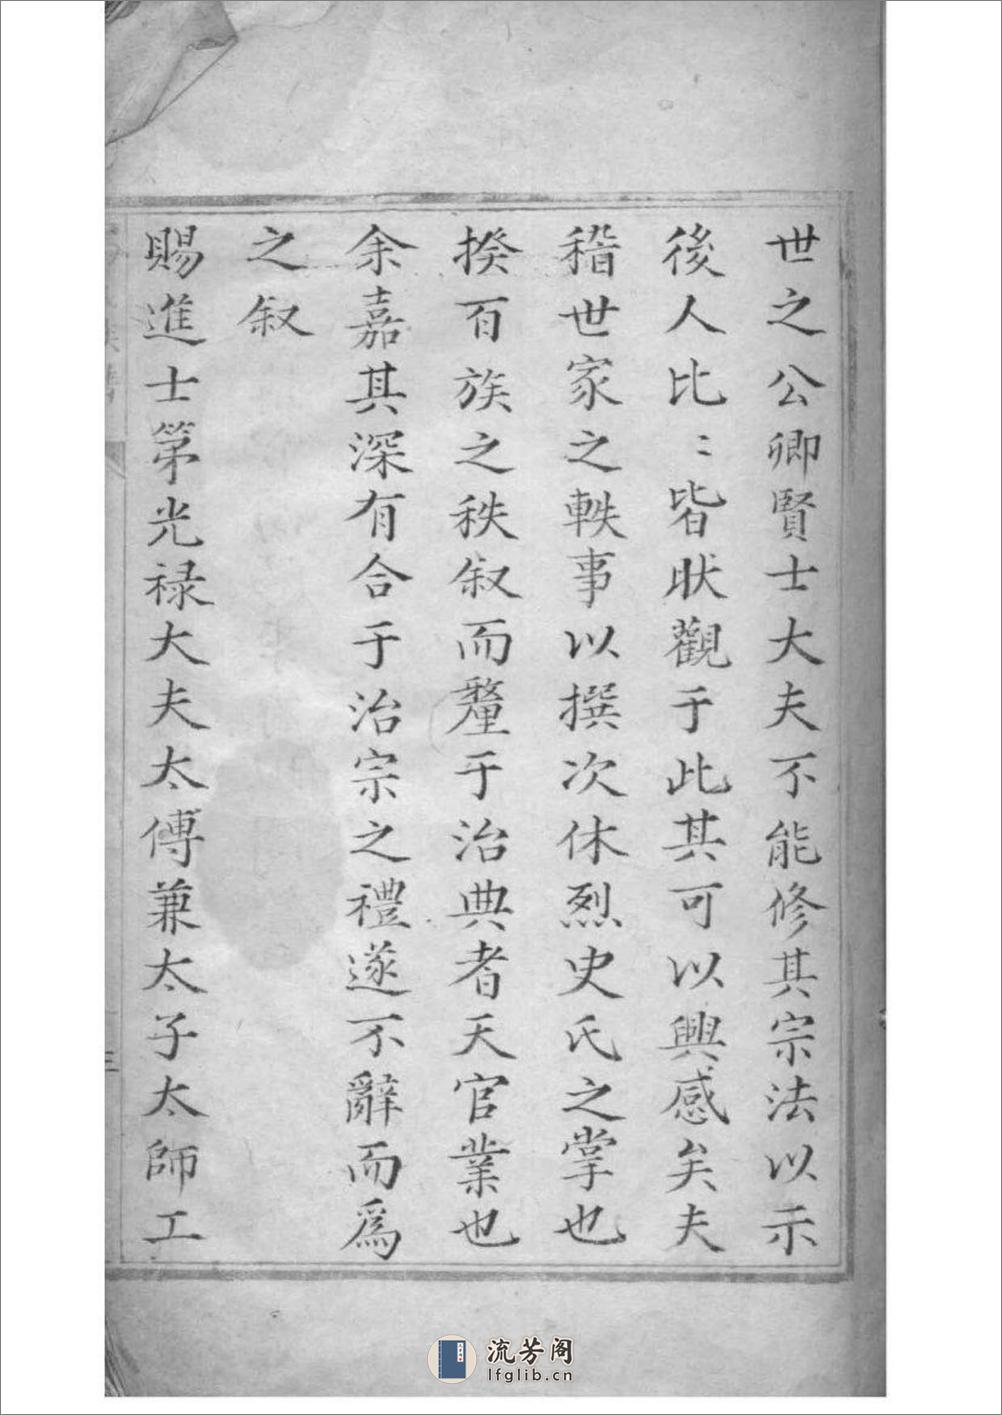 世之公卿賢士大夫不能修其宗法以示
後人比〻皆狀觀于此其可以興感矣夫
稽世家之軼事以撰次休烈史氏之掌也
揆百族之秩叙而釐于治典者天官業也
余嘉其深有合于治宗之禮遂不辭而為
之叙
賜進士第光禄大夫太傅兼太子太師工
流芳阁
lfglib.cn